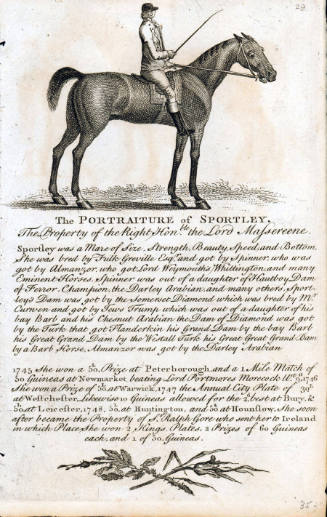 29
The PORTRAITURE of SPORTLEY,
The Property of the Right Hon.ble the Lord Massereene.
Sportley was a Mare of Size, Strength, Beauty, Speed, and Bottom,
She was bred by Fulk Greville Esq.r and got by Spinner, who was
got by Almanzor, who got Lord Weymouths Whittington, and many
Eminent Horses, Spinner was out of a daughter of Hautboy, Dam
of Foxhunter, Champion, the Darley Arabian, and many others, Sport-
leys Dam was got by the Somerset Diamond which was bred by Mr.
Curwen and got by Jews Trump which was out of a daughter of his
bay Barb and his Chesnut Arabian the Dam of Diamond was got
by the Turk that got Flanderkin his Grand Dam by the bay Barb
his Great Grand Dam by the Wstall Turk his Great Great Grand Dam
by a Barb Horse, Almanzor was got by the Darley Arabian
1745 She won a 50. Prize at Peterborough, and a 1 Mile Match of
50 Guineas at Newmarket, beating Lord Portmores Morecock 1746
She won a Prize of 50. at Warwick, 1747 the Annual City Plate of 30.
at Westchester, Likewise 10 Guineas allowed for the 2.d best at Bury, &
50. at Leicester, 1748. 50. at Huntington, and 50 at Hounslow. She soon
after became the Property of S.r Ralph Gore who sent her to Ireland
in which Place She won 2 Kings Plates, 2 Prizes of 60 Guineas
each, and 1 of 50. Guineas.
35-